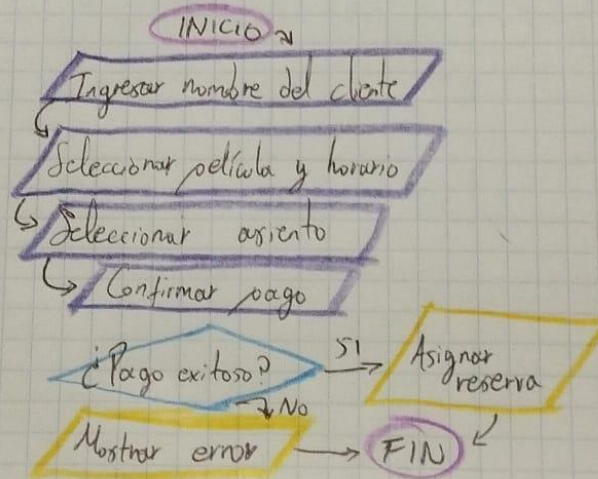 INICIO
Ingresar nombre del cliente
Seleccionar película y horario
Seleccionar asiento
Confirmar pago
¿Pago exitoso?
SI
Asignar
reserva
NO
Mostrar error
FIN